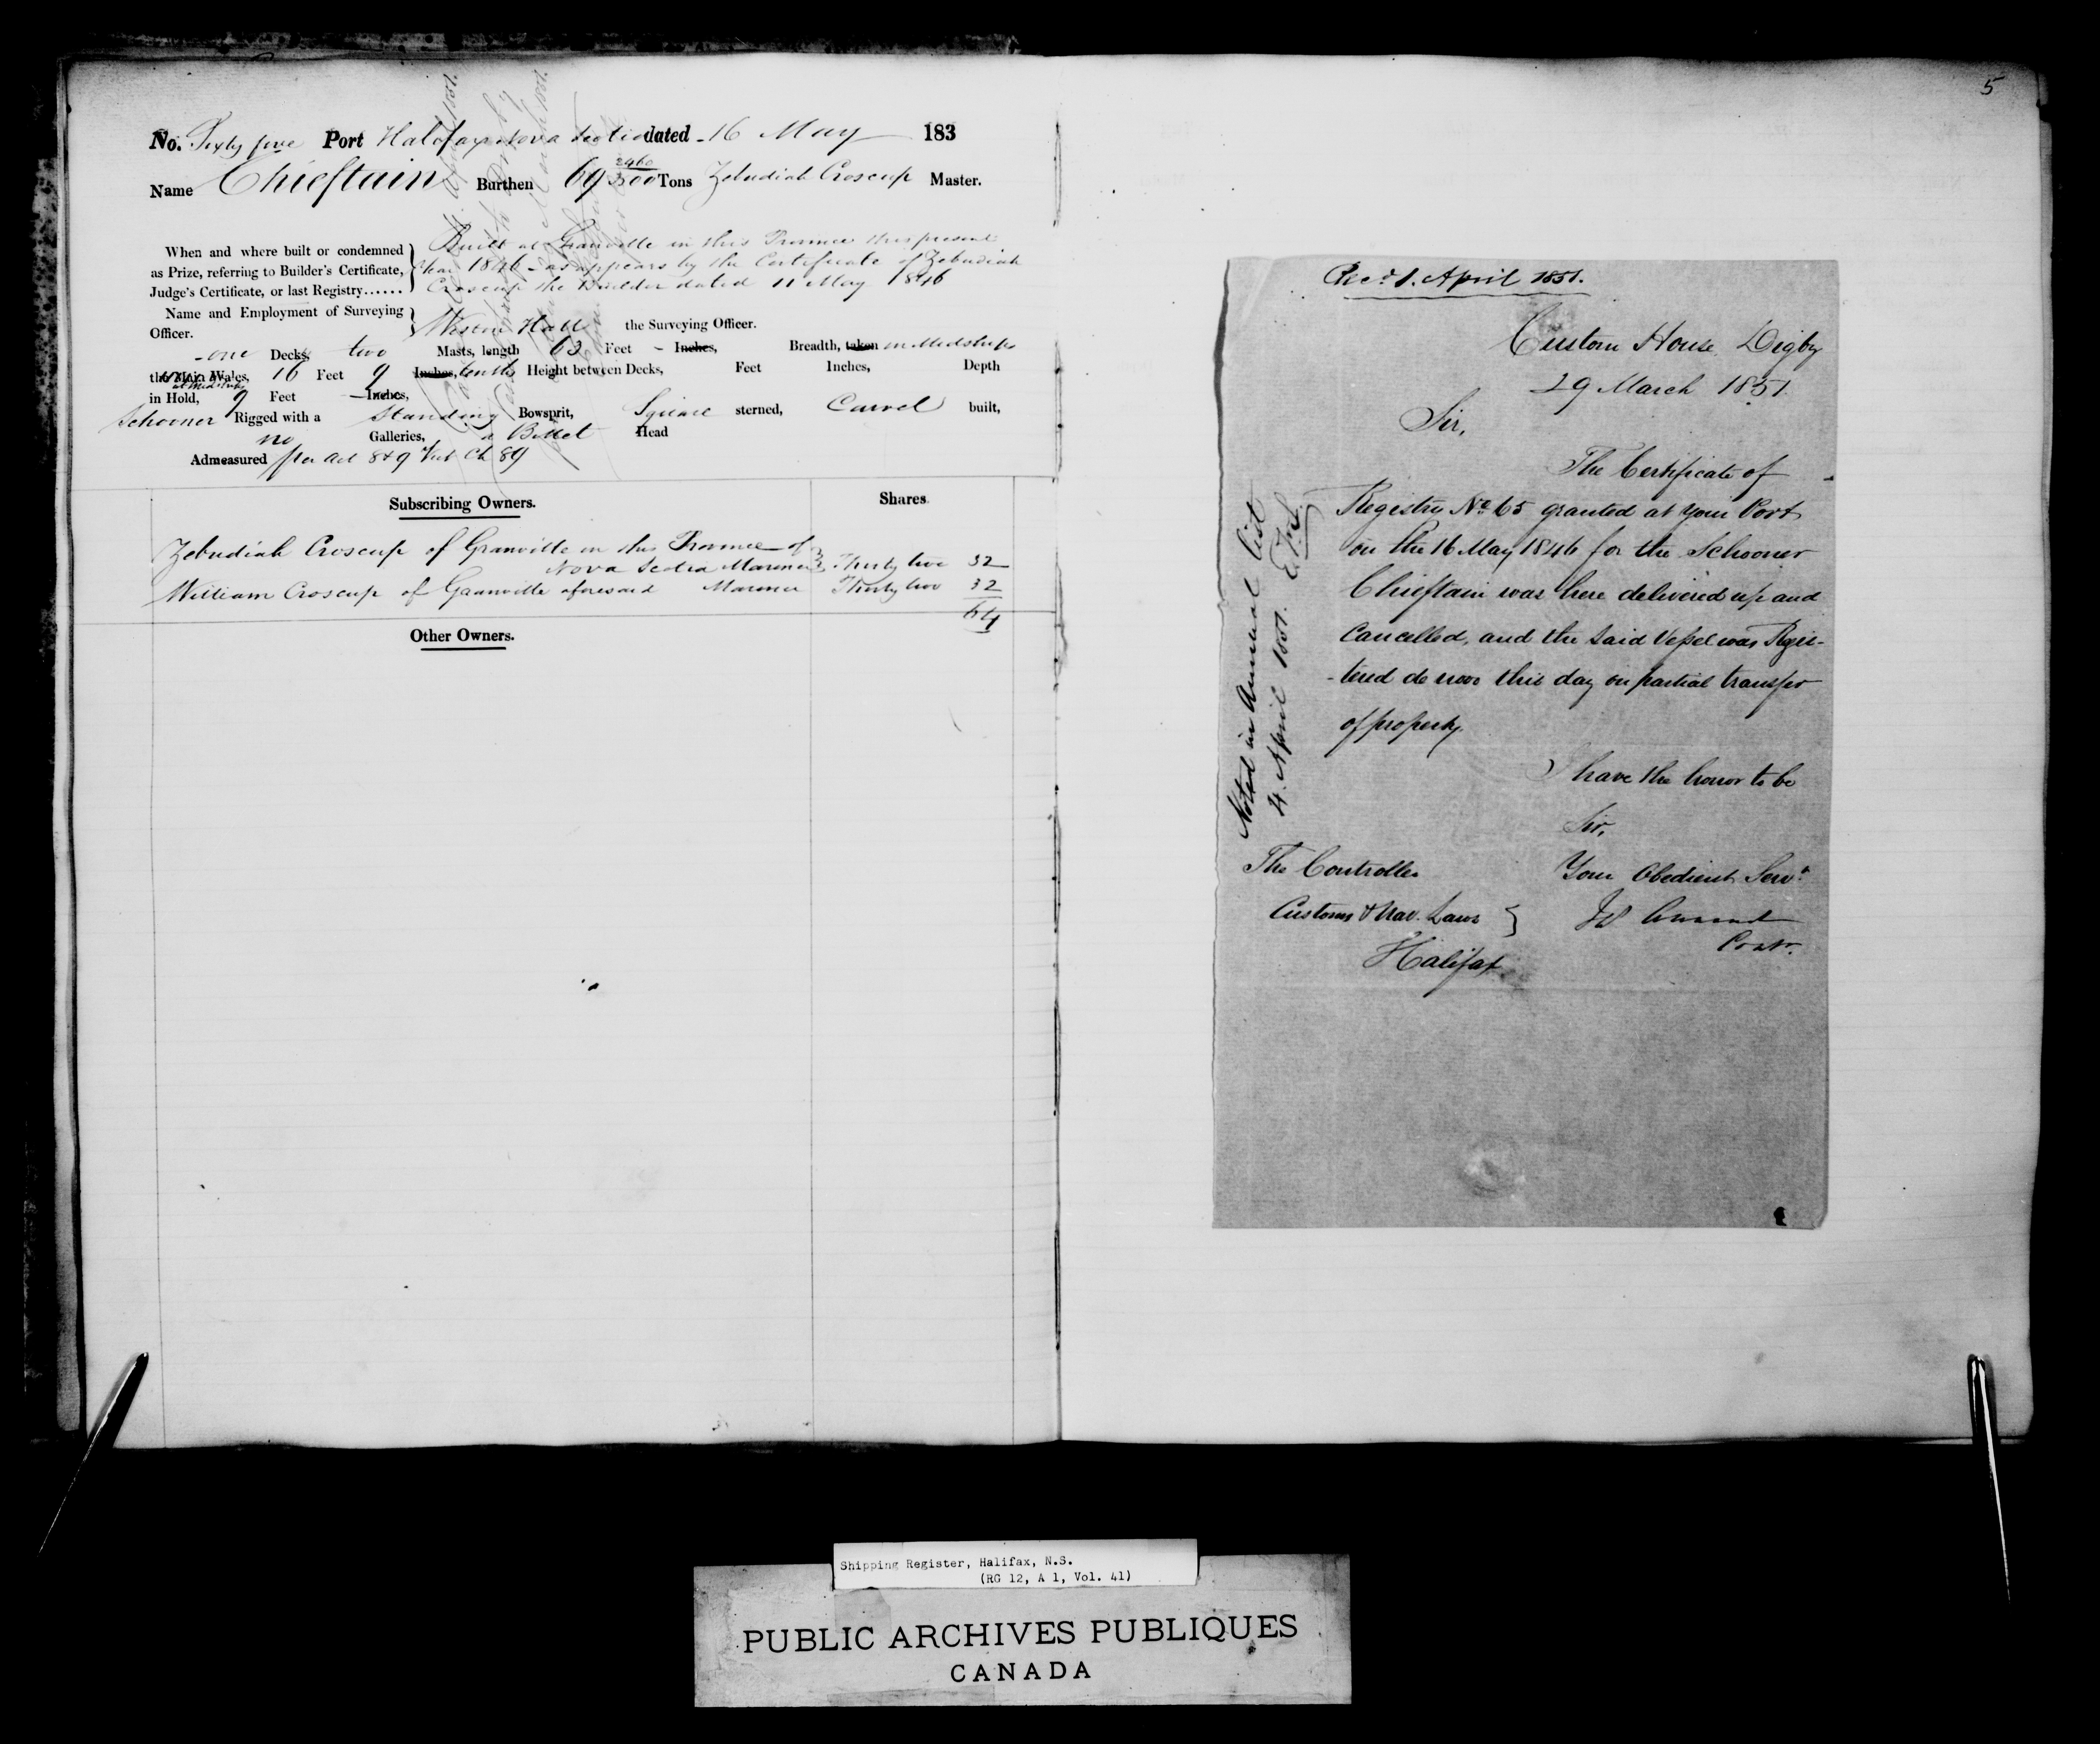 No. Sixty five Port Halifax Nova Scotia dated 16 May 183
Name Chieftain Burthen 69 2460/3500 Tons Zebudiah Croscup Master.
When and where built or condemned
as Prize, referring to Builder's Certificate,
Judge's Certificate, or last Registry......
Built at Granville in this Province this present
Year 1846 - as appears by the Certificate of Zebudiah
Croscup the Builder dated 11 May 1846
Name and Employment of Surveying
Officer.
Weston Hall the Surveying Officer.
one Decks, two Masts, length 63 Feet - Inches, Breadth, taken in Midships
the Main Wales, 16 Feet 9 Inches, tenths Height between Decks, Feet Inches, Depth
in Hold, at Midships 9 Feet - Inches,
Schooner Rigged with a Standing Bowsprit, Square sterned, Carvel built,
no Galleries, a Billet Head
Admeasured per Act 8 & 9 Vict Ch 89
Subscribing Owners. Shares.
Zebudiah Croscup of Granville in this Province of
Nova Scotia Mariner Thirty two 32
William Croscup of Granville aforesaid Mariner Thirty two 32
64
Other Owners.
5
Rec.d 1. April 1851.
Custom House Digby
29 March 1851.
Sir,
The Certificate of
Registry No. 65 granted at your Port
on the 16 May 1846 for the Schooner
Chieftain was here delivered up and
Cancelled, and the said Vessel was Regis-
-tered de novo this day on partial transfer
of property.
I have the honor to be
Sir,
Your Obedient Servt
Contr.
The Controller
Customs & Nav. Laws
Halifax
Noted in Annual list
4. April 1851.
Shipping Register, Halifax, N.S.
(RG 12, A 1, Vol. 41)
PUBLIC ARCHIVES PUBLIQUES
CANADA